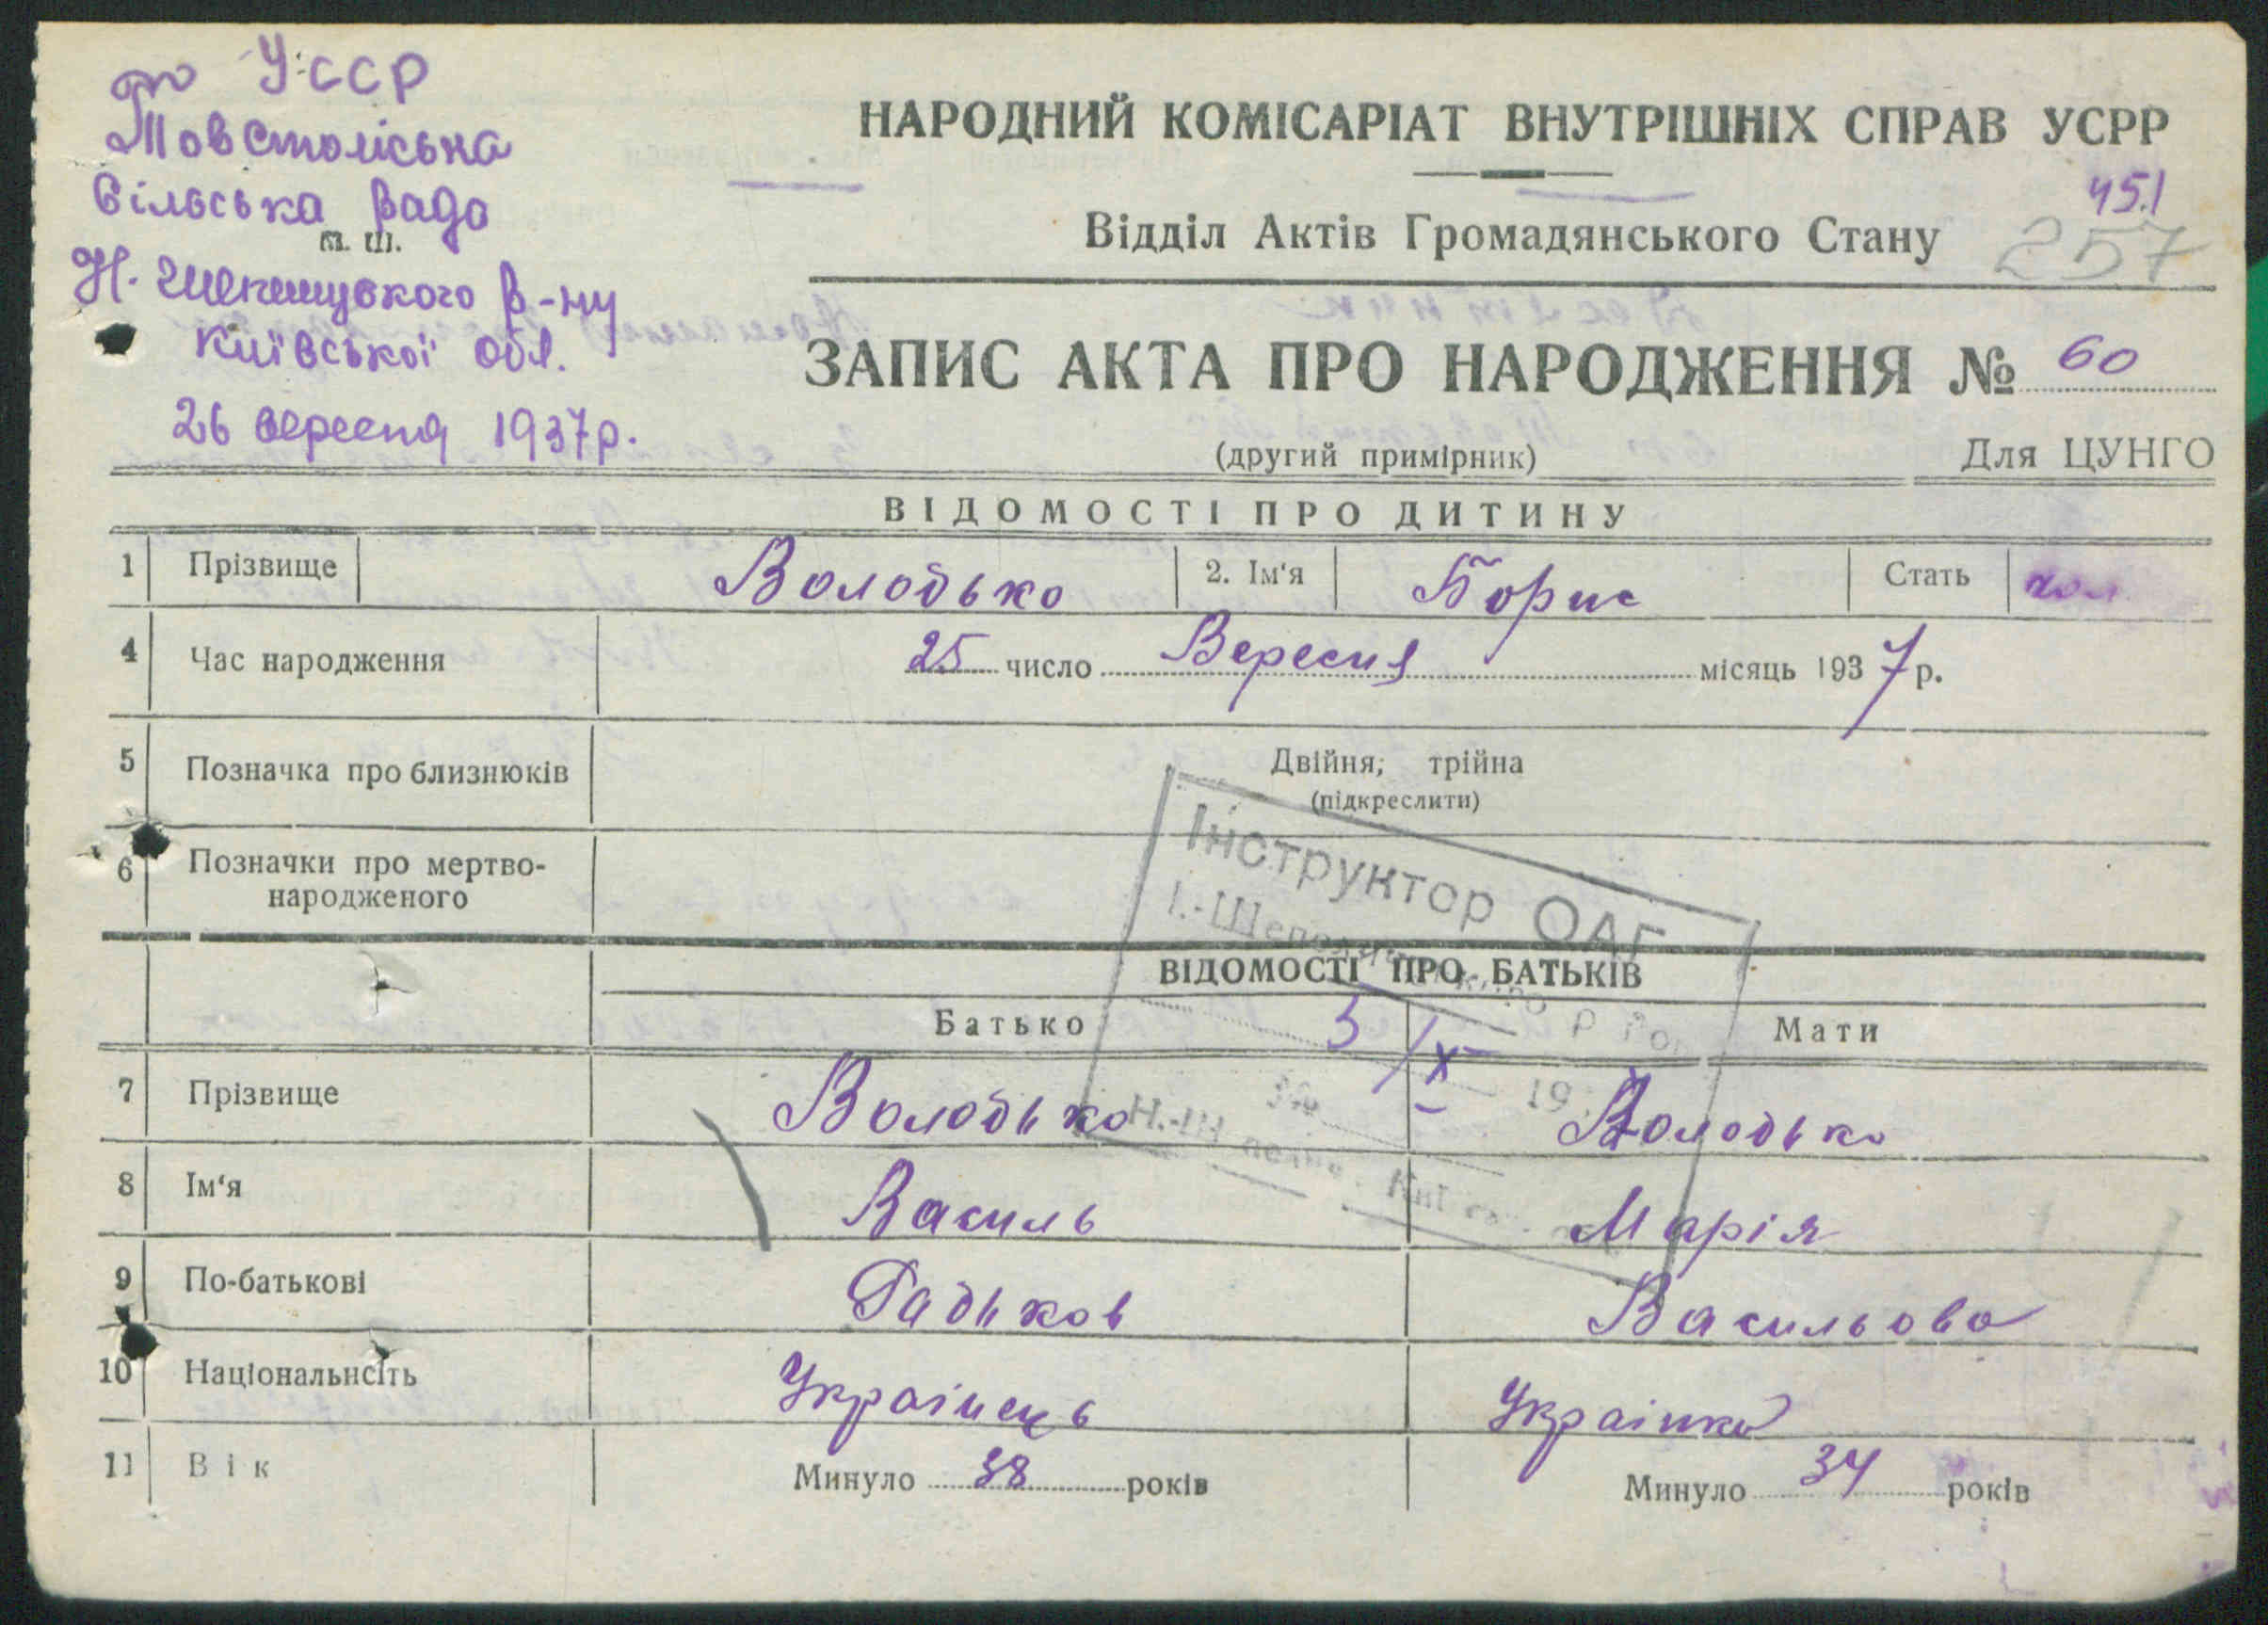 УССР
Товстоліська
Сільська Рада
м. ш.
Н. Шепелицького р-ну
Київської обл.
26 вересня 1937 р.
НАРОДНИЙ КОМІСАРІАТ ВНУТРІШНІХ СПРАВ УСРР
451
Відділ Актів Громадянського Стану
257
ЗАПИС АКТА ПРО НАРОДЖЕННЯ № 60
(другий примірник) Для ЦУНГО
ВІДОМОСТІ ПРО ДИТИНУ
1 Прізвище Володько 2. Ім'я Борис Стать чол.
4 Час народження 25 число Вересня місяць 1937 р.
5 Позначка про близнюків Двійня, трійна
(підкреслити)
6 Позначки про мертво-
народженого
Інструктор ОАГ
ВІДОМОСТІ ПРО БАТЬКІВ
Батько Мати
3/X 19
7 Прізвище Володько Володько
8 Ім'я Василь Марія
9 По-батькові Радьков Васильова
10 Національнсіть Українець Українка
11 Вік Минуло 38 років Минуло 34 років